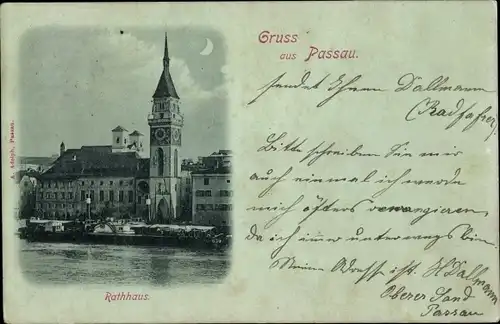 Gruss
aus Passau.
sendet Ihnen Dallmann
(Radfahrer
Bitte schreiben Sie mir
auch einmal ich werde
mich öfters revangieren,
da ich immer unterwegs bin,
Meine Adresse ist. H Dallmann
Oberer Sand
Passau
A. Adolph, Passau.
Rathhaus.